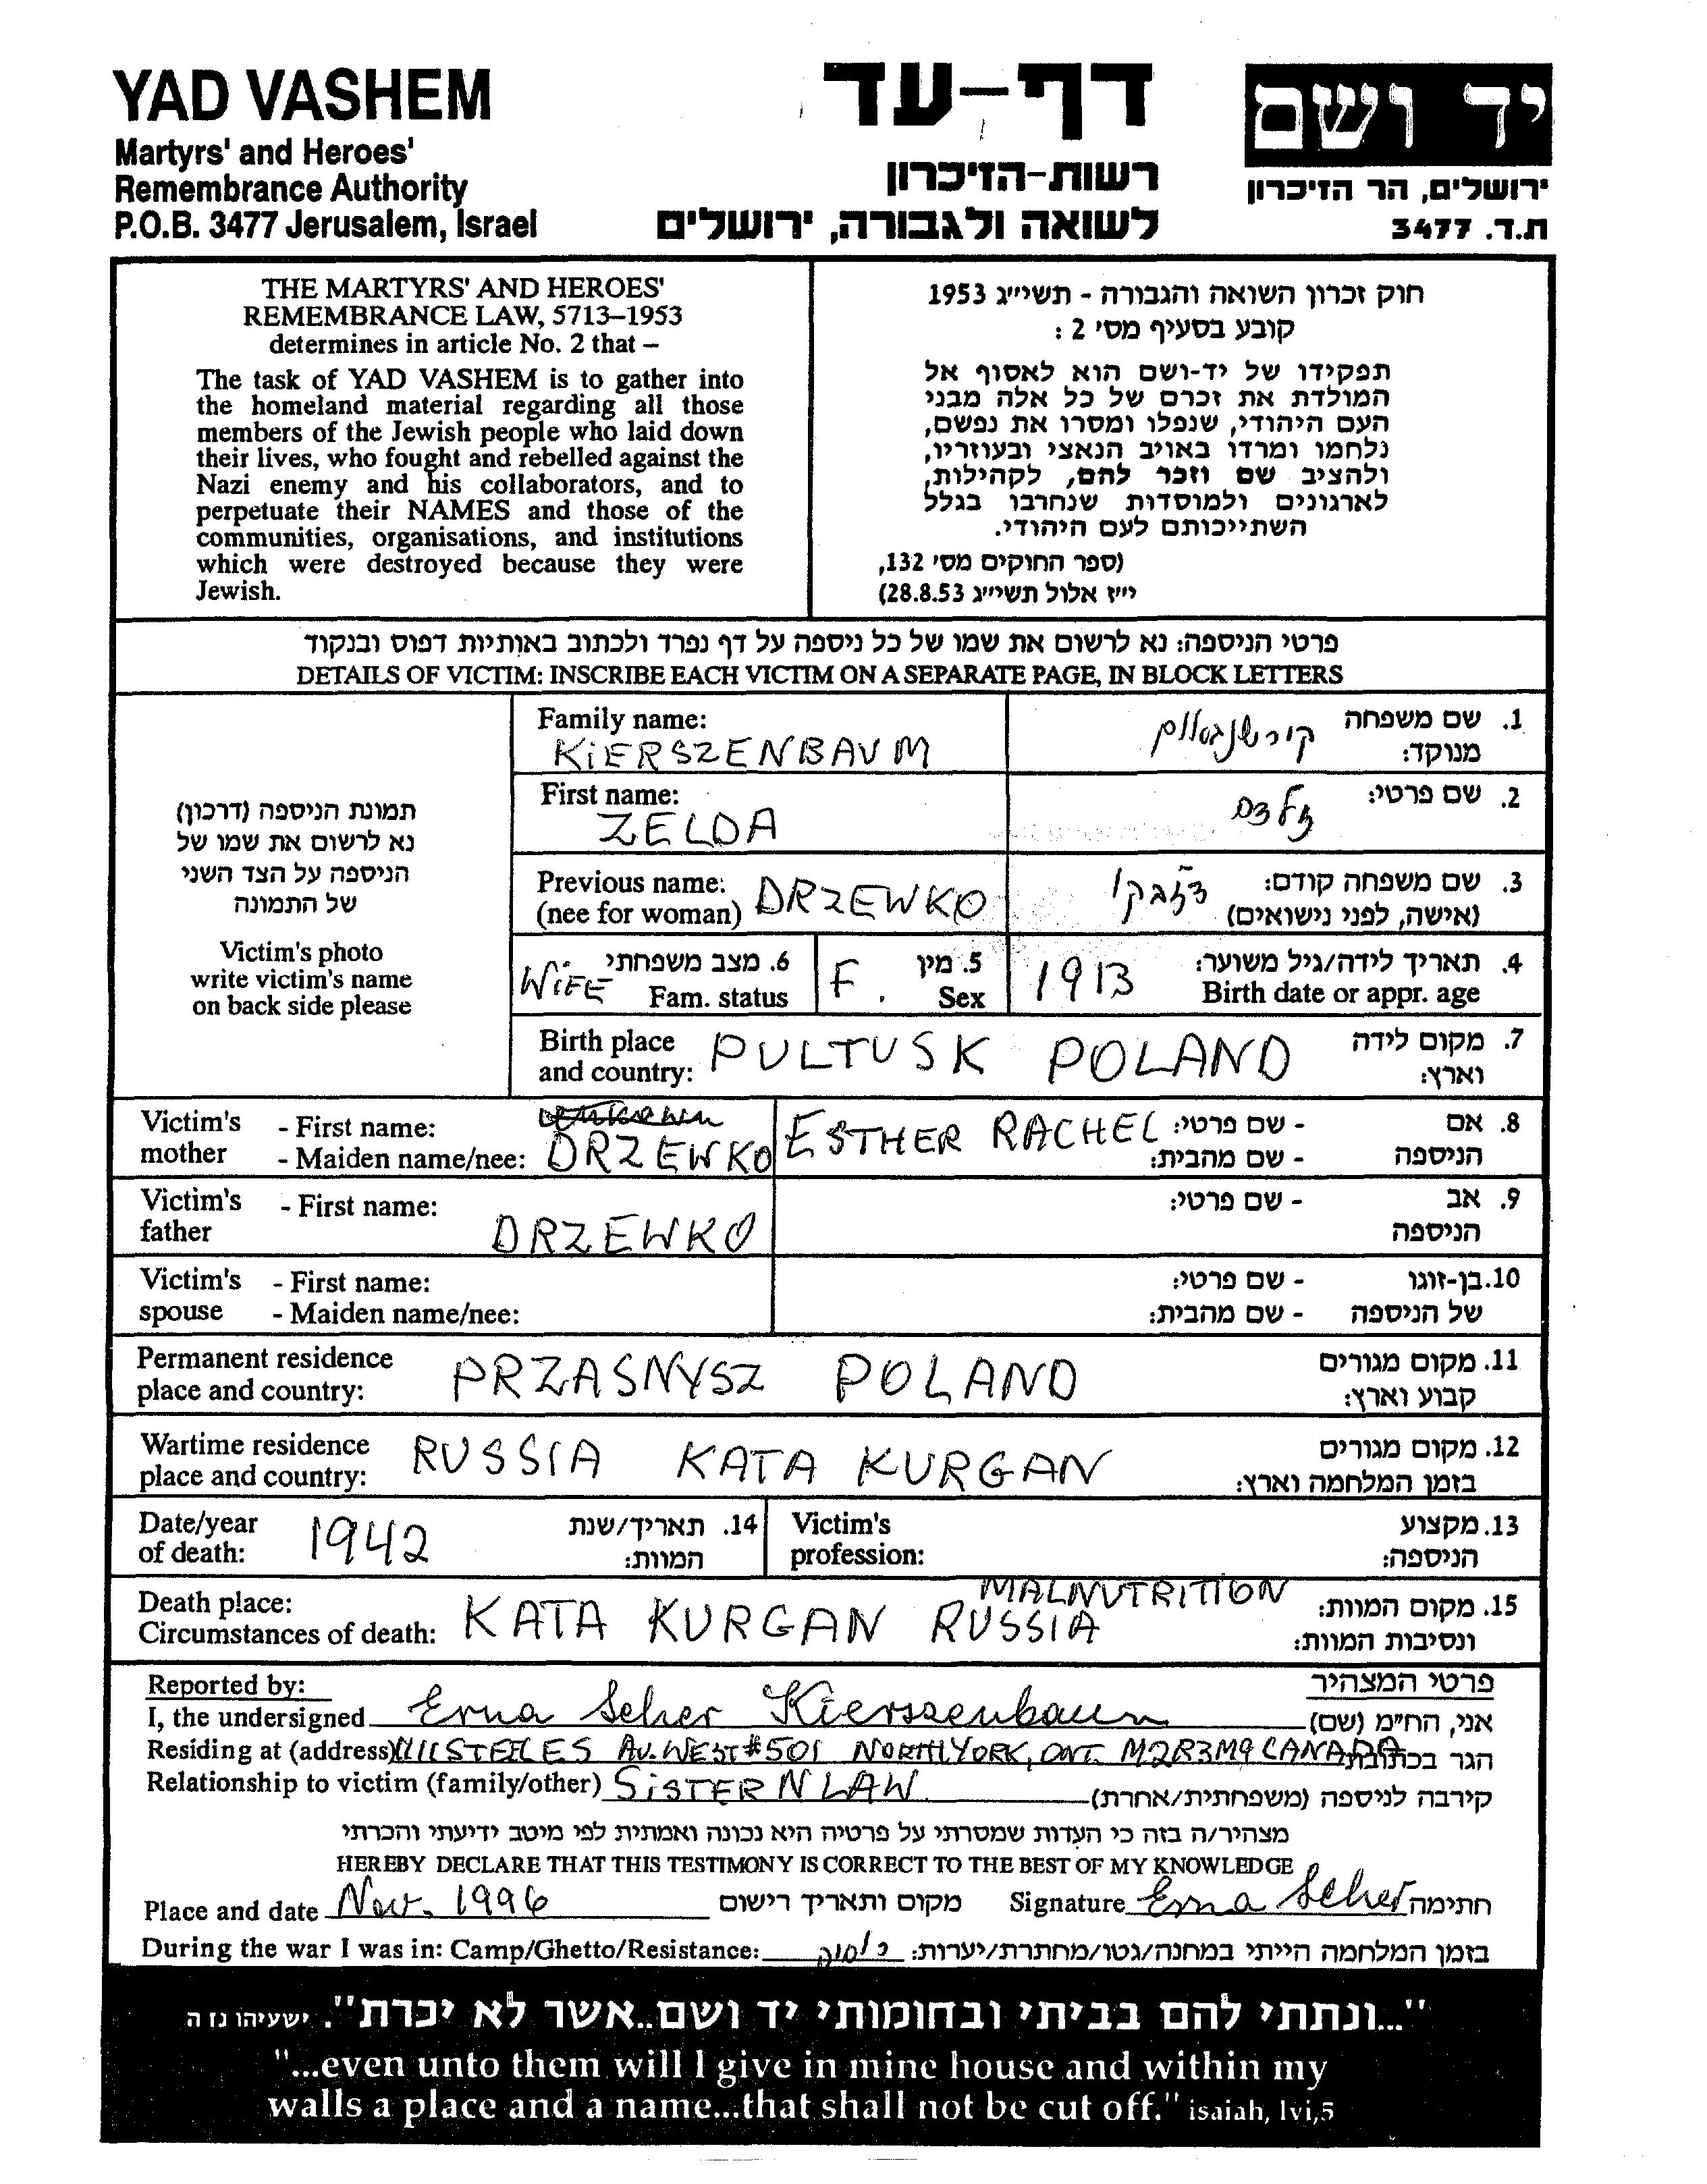 YAD VASHEM
Martyrs' and Heroes'
Remembrance Authority
P.O.B. 3477 Jerusalem, Israel
דף-עד
רשות-הזיכרון
לשואה ולגבורה, ירושלים
יד ושם
ירושלים, הר הזיכרון
ת.ד. 3477
THE MARTYRS' AND HEROES'
REMEMBRANCE LAW, 5713–1953
determines in article No. 2 that –
The task of YAD VASHEM is to gather into
the homeland material regarding all those
members of the Jewish people who laid down
their lives, who fought and rebelled against the
Nazi enemy and his collaborators, and to
perpetuate their NAMES and those of the
communities, organisations, and institutions
which were destroyed because they were
Jewish.
חוק זכרון השואה והגבורה - תשי״ג 1953
קובע בסעיף מס׳ 2 :
תפקידו של יד-ושם הוא לאסוף אל
המולדת את זכרם של כל אלה מבני
העם היהודי, שנפלו ומסרו את נפשם,
נלחמו ומרדו באויב הנאצי ובעוזריו,
ולהציב שם וזכר להם, לקהילות,
לארגונים ולמוסדות שנחרבו בגלל
השתייכותם לעם היהודי.
(ספר החוקים מס׳ 132,
י״ז אלול תשי״ג 28.8.53)
פרטי הניספה: נא לרשום את שמו של כל ניספה על דף נפרד ולכתוב באותיות דפוס ובנקוד
DETAILS OF VICTIM: INSCRIBE EACH VICTIM ON A SEPARATE PAGE, IN BLOCK LETTERS
תמונת הניספה (דרכון)
נא לרשום את שמו של
הניספה על הצד השני
של התמונה
Victim's photo
write victim's name
on back side please
Family name: 1. שם משפחה
KiERSZENBAUM מנוקד:
First name: 2. שם פרטי:
ZELDA
Previous name: DRZEWKO 3. שם משפחה קודם:
(nee for woman) (אישה, לפני נישואים)
WiFE 6. מצב משפחתי F. 5. מין 1913 4. תאריך לידה/גיל משוער:
Fam. status Sex Birth date or appr. age
Birth place PULTUSK POLAND 7. מקום לידה
and country: וארץ:
Victim's - First name: ESTHER RACHEL - שם פרטי: 8. אם
mother - Maiden name/nee: DRZEWKO - שם מהבית: הניספה
Victim's - First name: - שם פרטי: 9. אב
father DRZEWKO הניספה
Victim's - First name: - שם פרטי: 10. בן-זוגו
spouse - Maiden name/nee: - שם מהבית: של הניספה
Permanent residence PRZASNYSZ POLAND 11. מקום מגורים
place and country: קבוע וארץ:
Wartime residence RUSSIA KATA KURGAN 12. מקום מגורים
place and country: בזמן המלחמה וארץ:
Date/year 1942 14. תאריך/שנת Victim's 13. מקצוע
of death: המוות: profession: הניספה:
Death place: MALNUTRITION 15. מקום המוות:
Circumstances of death: KATA KURGAN RUSSIA ונסיבות המוות:
Reported by: פרטי המצהיר
I, the undersigned Erna Scher Kierszenbaum אני, החי״מ (שם)
Residing at (address) STEELES AV. WEST #501 NORTH YORK, ONT. M2R3M9 CANADA הגר בכתובת
Relationship to victim (family/other) SiSTER N LAW קירבה לניספה (משפחתית/אחרת)
מצהיר/ה בזה כי העדות שמסרתי על פרטיה היא נכונה ואמתית לפי מיטב ידיעתי והכרתי
HEREBY DECLARE THAT THIS TESTIMONY IS CORRECT TO THE BEST OF MY KNOWLEDGE
Place and date Nov. 1996 מקום ותאריך רישום Signature Erna Scher חתימה
During the war I was in: Camp/Ghetto/Resistance: בזמן המלחמה הייתי במחנה/גטו/מחתרת/יערות:
"...ונתתי להם בביתי ובחומותי יד ושם..אשר לא יכרת". ישעיהו נו ה
"...even unto them will I give in mine house and within my
walls a place and a name...that shall not be cut off." isaiah, lvi,5